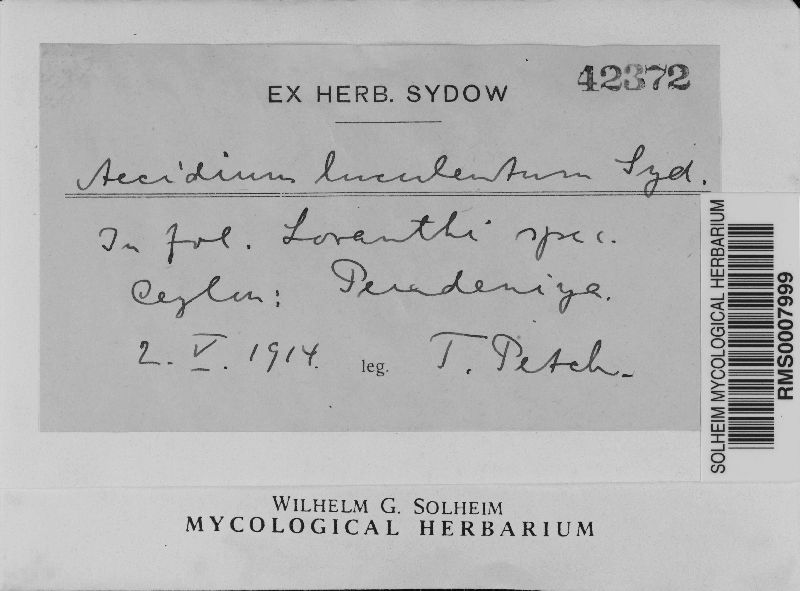 EX HERB. SYDOW
42372
Aecidium luculentum Syd.
In fol. Loranthi spec.
Ceylon: Peradeniya.
2. V. 1914. leg. T. Petch.
SOLHEIM MYCOLOGICAL HERBARIUM
RMS0007999
WILHELM G. SOLHEIM
MYCOLOGICAL HERBARIUM